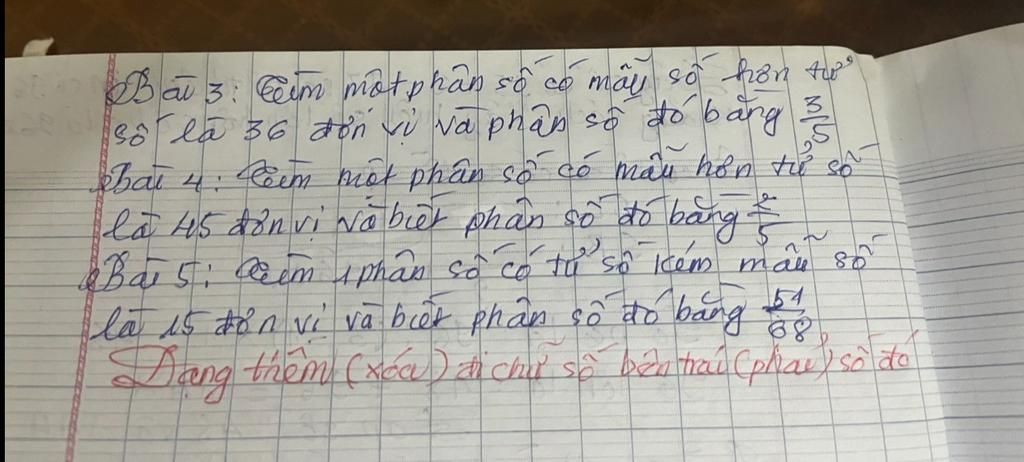 Bài 3: Tìm một phân số có mẫu số hơn tử
số là 36 đơn vị và phân số đó bằng 3/5
Bài 4: Tìm một phân số có mẫu hơn tử số
là 45 đơn vị và biết phân số đó bằng 2/5
Bài 5: Tìm 1 phân số có tử số kém mẫu số
là 15 đơn vị và biết phân số đó bằng 51/68
Dạng thêm (xóa) đi chữ số bên trái (phải) số đó